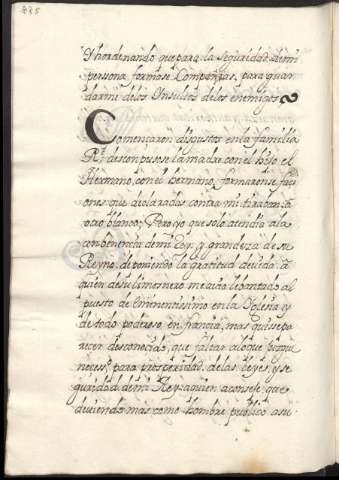 335
Y hordenando que para la seguridad de mi
persona formase Compañias, para guar
darmi delos Insultos delos enemigos
Comencaron disgustos en la familia
Rl. descompusose la madre con el hijo el
Hermano, con el hermano, formaronse faci
ones que declaradas contra mi tiraban a
otro blanco; Pero yo que solo atendia ala
combeniencia de mi Rey, y grandeza de su
Reyno, deponiendo la gratitud devida, a
quien desu limosnero me avia lebantado al
puesto de Eminentissimo en la Iglesia, y
de todo poderoso, en francia, mas quise pa
recer desconocido, que faltar alo que Juzgue
necesso. para prosperidad, delas leyes, y se
guridad, de mi Rey aquien aconseje que
diuiendo mas como hombre publico asu